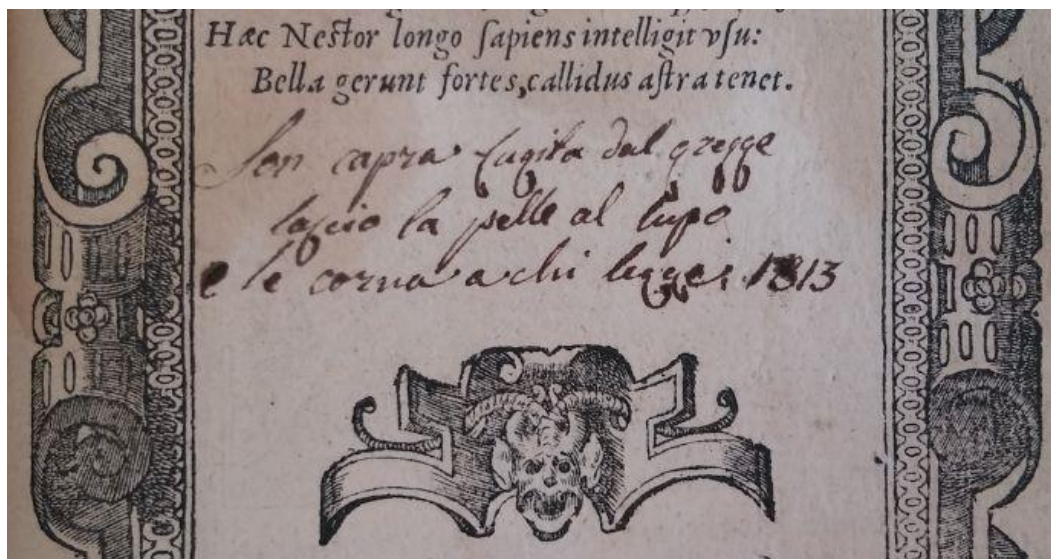 Hæc Neſtor longo ſapiens intelligit vſu:
Bella gerunt fortes, callidus aſtra tenet.
Son capra fugita dal gregge
lascio la pelle al lupo
e le corna a chi legge 1813